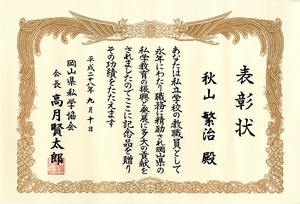 表彰状
秋山 繁治 殿
あなたは私立学校の教職員として
永年にわたり職務に精励され岡山県の
私学教育の振興と発展に多大の貢献を
されましたのでここに記念品を贈り
その功績をたたえます
平成二十八年九月十日
岡山県私学協会
会長 高月賢太郎